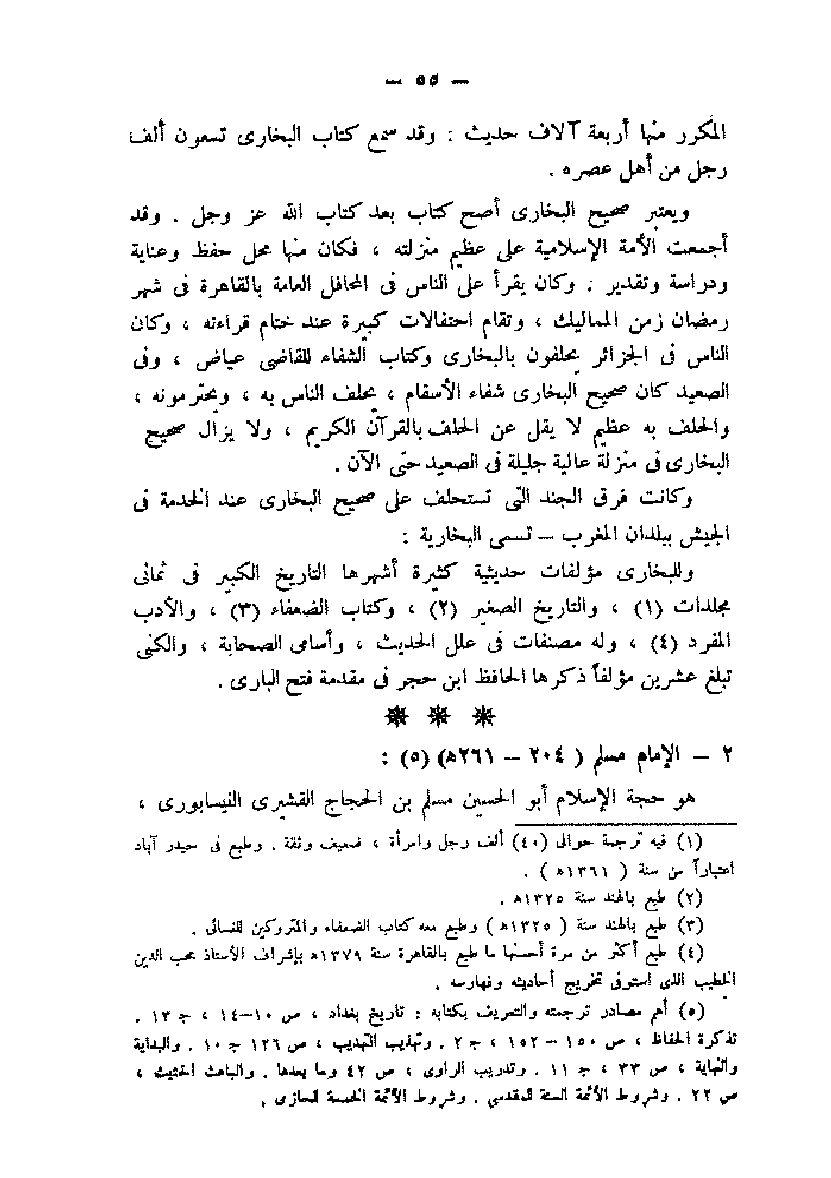 — ٥٥ —
المكرر منها أربعة آلاف حديث : وقد سمع كتاب البخارى تسعون ألف
رجل من أهل عصره .
ويعتبر صحيح البخارى أصح كتاب بعد كتاب الله عز وجل . وقد
أجمعت الأمة الإسلامية على عظيم منزلته ، فكان منها محل حفظ وعناية
ودراسة وتقدير . وكان يقرأ على الناس فى المحافل العامة بالقاهرة فى شهر
رمضان زمن المماليك ، وتقام احتفالات كبيرة عند ختام قراءته ، وكان
الناس فى الجزائر يحلفون بالبخارى وكتاب الشفاء للقاضى عياض ، وفى
الصعيد كان صحيح البخارى شفاء الأسقام ، يحلف الناس به ، ويحترمونه ،
والحلف به عظيم لا يقل عن الحلف بالقرآن الكريم ، ولا يزال صحيح
البخارى فى منزلة عالية جليلة فى الصعيد حتى الآن .
وكانت فرق الجند التى تستحلف على صحيح البخارى عند الخدمة فى
الجيش ببلدان المغرب – تسمى البخارية :
وللبخارى مؤلفات حديثية كثيرة أشهرها التاريخ الكبير فى ثمانى
مجلدات (١) ، والتاريخ الصغير (٢) ، وكتاب الضعفاء (٣) ، والأدب
المفرد (٤) ، وله مصنفات فى علل الحديث ، وأسامى الصحابة ، والكنى
تبلغ عشرين مؤلفاً ذكرها الحافظ ابن حجر فى مقدمة فتح البارى .
* * *
٢ – الإمام مسلم ( ٢٠٤ – ٢٦١ه) (٥) :
هو حجة الإسلام أبو الحسين مسلم بن الحجاج القشيرى النيسابورى ،
(١) فيه ترجمة حوالى (٤٠) ألف رجل وامرأة ، ضعيف وثقة . وطبع فى حيدر آباد
اعتباراً من سنة ( ١٣٦١ه ) .
(٢) طبع بالهند سنة ١٣٢٥ه .
(٣) طبع بالهند سنة ( ١٣٢٥ه ) وطبع معه كتاب الضعفاء والمتروكين للنسائى .
(٤) طبع أكثر من مرة أحسنها ما طبع بالقاهرة سنة ١٣٧٩ه بإشراف الأستاذ محب الدين
الخطيب الذى استوفى تخريج أحاديثه وفهارسه .
(٥) أهم مصادر ترجمته والتعريف بكتابه : تاريخ بغداد ، ص ١٠–١٤ ، ج ١٣ .
تذكرة الحفاظ ، ص ١٥٠ – ١٥٢ ، ج ٢ . وتهذيب التهذيب ، ص ١٢٦ ج ١٠ . والبداية
والنهاية ، ص ٣٣ ، ج ١١ . وتدريب الراوى ، ص ٤٢ وما بعدها . والباعث الحثيث ،
ص ٢٢ . وشروط الأئمة الستة للمقدسى . وشروط الأئمة الخمسة للحازمى .